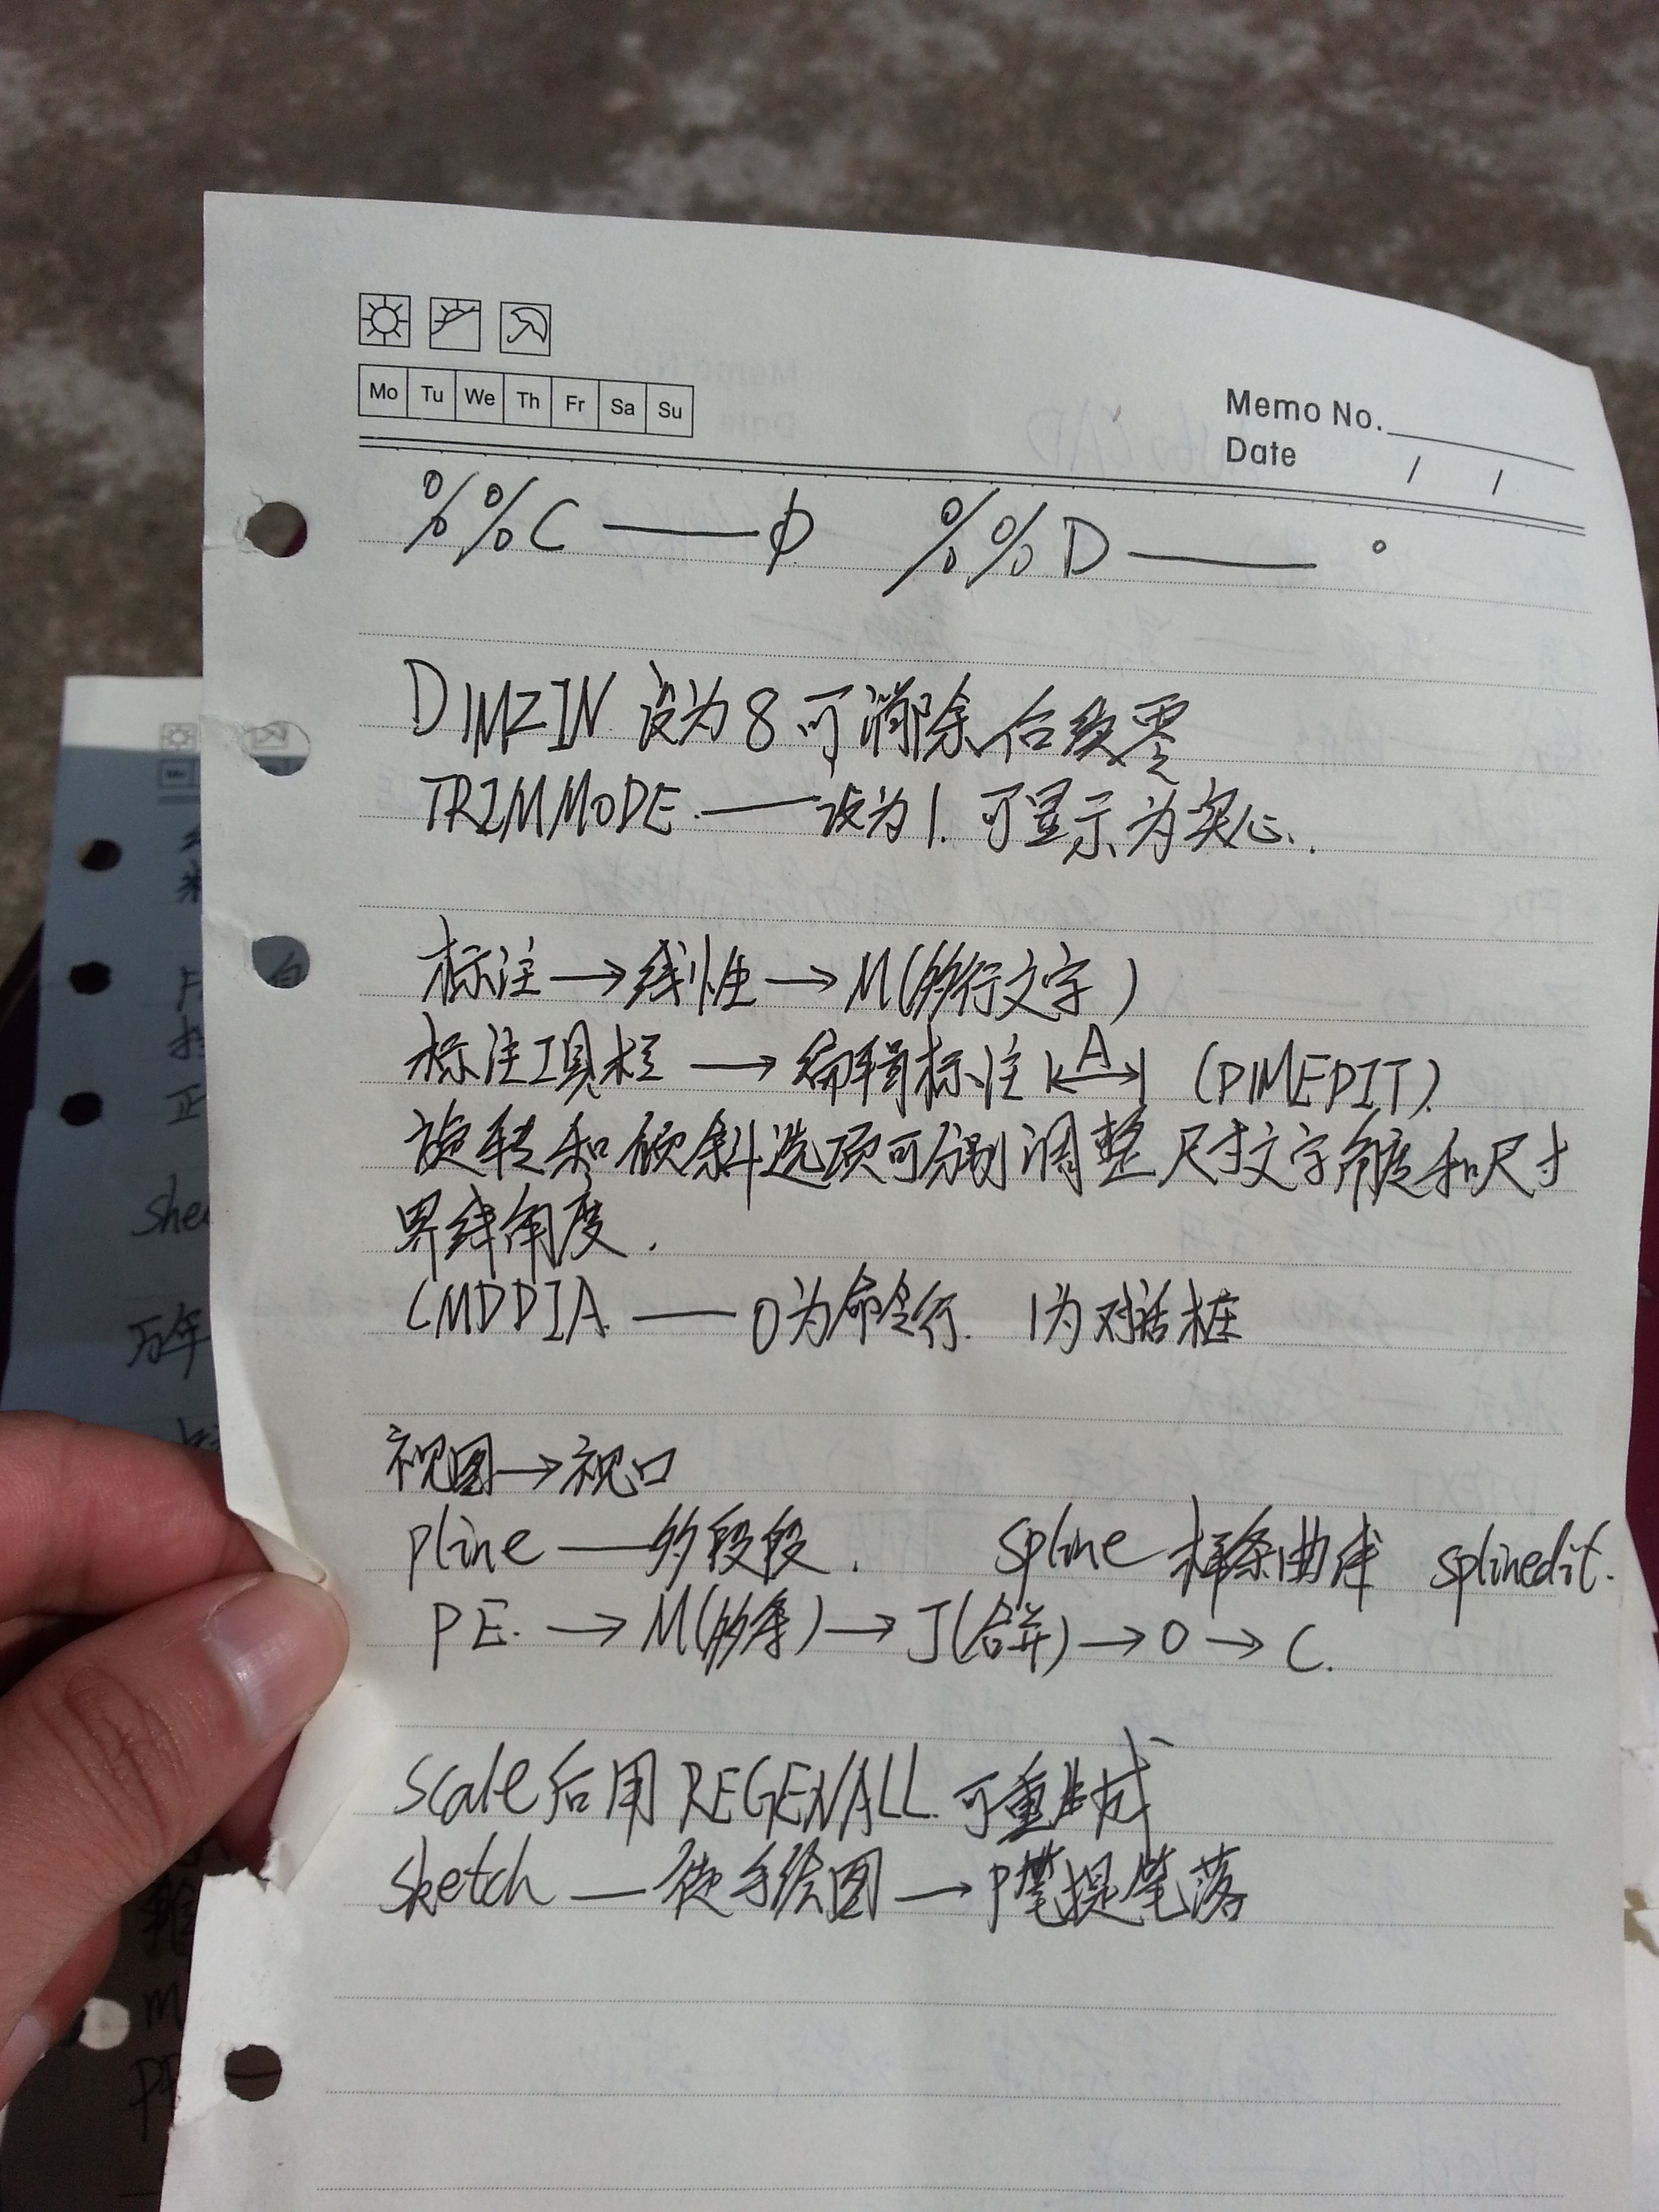 Mo Tu We Th Fr Sa Su
Memo No.
Date / /
%%C —— ф %%D —— °
DIMZIN 设为8可消除后续零
TRIMMODE —— 设为1.可显示为实心.
标注→线性→M(多行文字)
标注工具栏 → 编辑标注 |←A→| (DIMEDIT).
旋转和倾斜选项可分别调整尺寸文字角度和尺寸
界线角度.
CMDDIA —— 0为命令行. 1为对话框
视图→视口
pline —— 多段段. spline 样条曲线 splinedit.
PE. → M(多条) → J(合并) → 0 → C.
scale后用REGENALL.可重生成
sketch — 徒手绘图 → P笔提笔落
She
万年
正